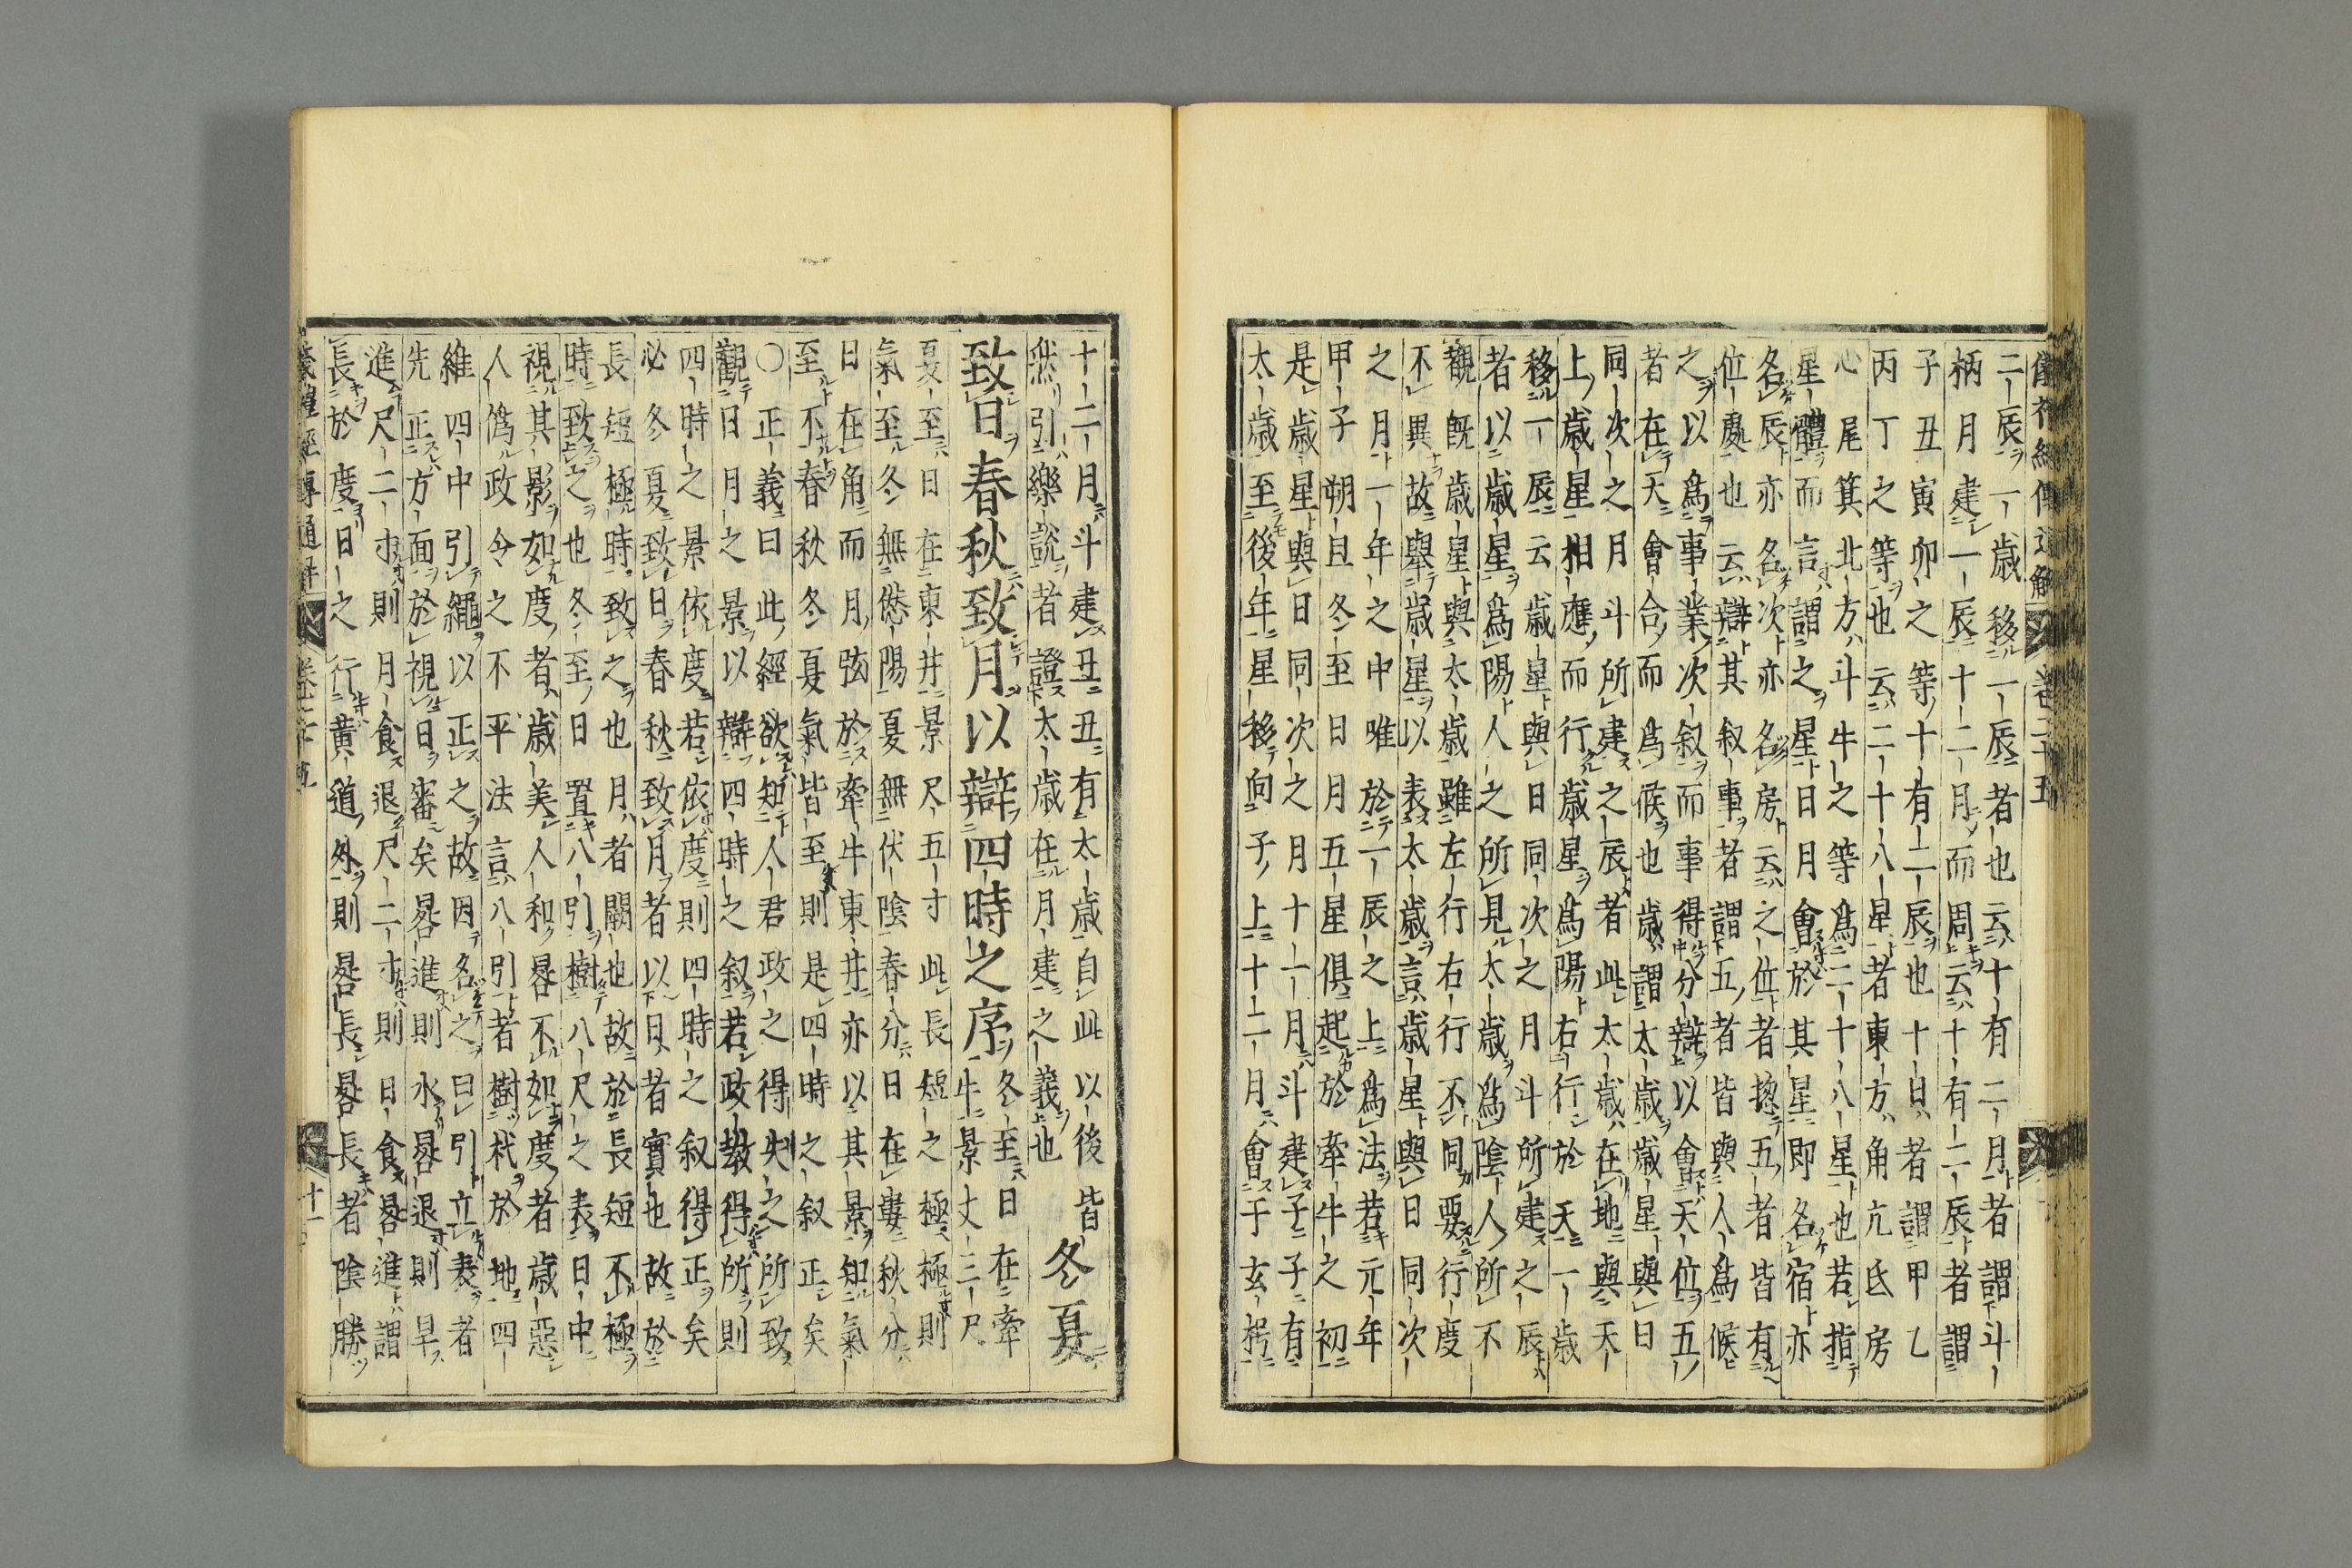 儀礼經傳通解 卷二十五
二辰一歳移一辰者也云十有二月者謂斗
柄月建一辰十二月而周云十有二辰者謂
子丑寅卯之等十有二辰也十日者謂甲乙
丙丁之等也云二十八星者東方角亢氐房
心尾箕北方斗牛之等爲二十八星也若指
星體而言謂之星日月會於其星即名宿亦
名辰亦名次亦名房云之位者揔五者皆有
位處也云辯其叙事者謂五者皆與人爲候
之以爲事業次叙而事事得分辯以會天位五
者在天會合而爲候也歳謂太歳歳星與日
同次之月斗所建之辰者此太歳在地與天
上歳星相應而行歳星爲陽右行於天一歳
移一辰云歳星與日同次之月斗所建之辰
者以歳星爲陽人之所見太歳爲陰人所不
觀既歳星與太歳雖左行右行不同要行度
不異故舉歳星以表太歳言歳星與日同次
之月一年之中唯於一辰之上爲法若元年
甲子朔旦冬至日月五星俱起於牽牛之初
是歳星與日同次之月十一月斗建子子有
太歳至後年星移向子上十二月會于玄枵
十二月斗建丑丑有太歳自此以後皆
然引樂説者證太歳在月建之義也
冬夏
致日春秋致月以辯四時之序
冬至日在牽
牛景丈三尺
夏至日在東井景尺五寸此長短之極極則
氣至冬無愆陽夏無伏陰春分日在婁秋分
日在角而月弦於牽牛東井亦以其景知氣
至不春秋冬夏氣皆至則是四時之叙正矣
〇正義曰此經欲知人君政之得失之所致
觀日月之景以辯四時之叙若政教得所則
四時之景依度若依度則四時之叙得正矣
必冬夏致日春秋致月者以日者實也故於
長短極時致之也月者闕也故於長短不極
時致之也冬至日置八引樹八尺之表日中
視其影如度者歳美人和晷不如度者歳惡
人僞政令之不平法言八引者樹杙於地四
維四中引繩以正之故因名之曰引立表者
先正方面於視日審矣晷進則水晷退則旱
進尺二寸則月食退尺二寸則日食晷進謂
長於度日之行黄道外則晷長晷長者陰勝
儀禮經傳通解 卷二十五 十一